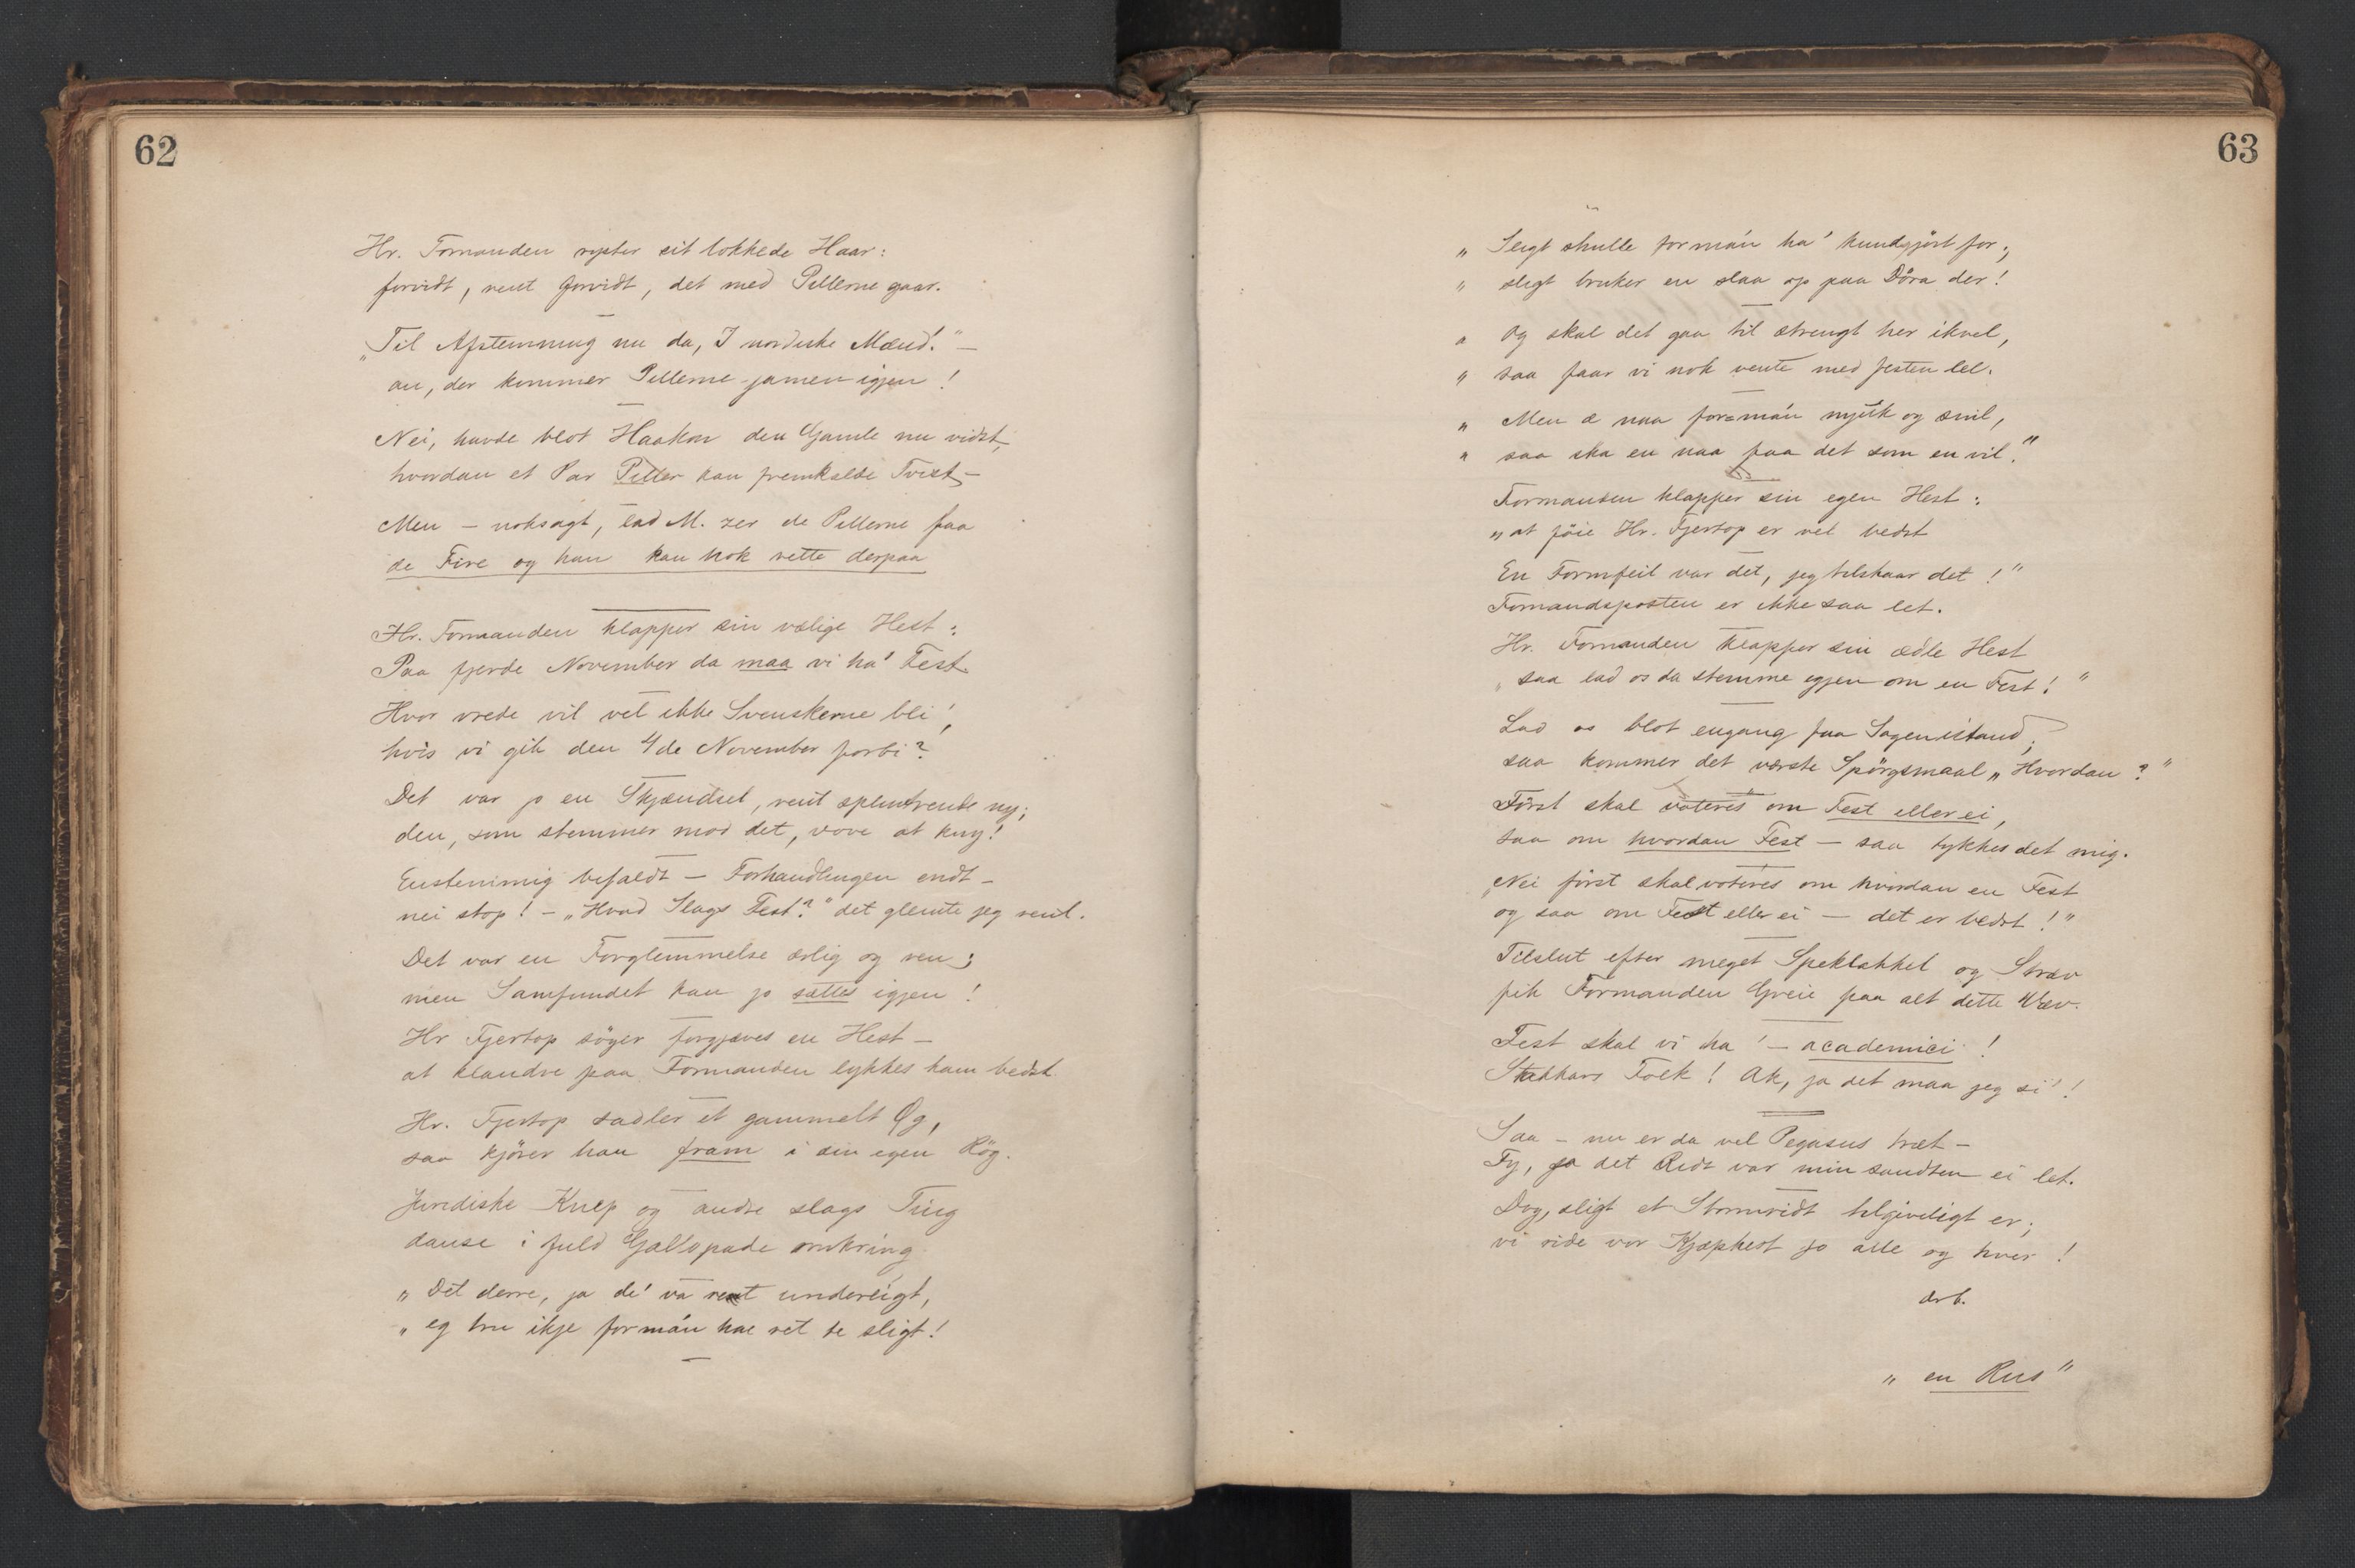 62
Hr. Formanden ryster sit lokkede Haar:
forvidt, rent forvidt, det med Pillerne gaar.
„Til Afstemning nu da, I nordiske Mænd!" —
au, der kommer Pillerne jamen igjen!
Nei, havde blot Haakon den Gamle nu vidst,
hvordan et Par Piller kan fremkalde Tvist —
Men — noksagt, lad M. zer de Pillerne faa
de Fire og han kan nok rette derpaa
Hr. Formanden klapper sin vælige Hest:
Paa fjerde November da maa vi ha' Fest.
Hvor vrede vil vel ikke Svenskerne bli',
hvis vi gik den 4de November forbi?
Det var jo en Skjændsel, rent splinterende ny;
den, som stemmer mod det, vove at kny!
Enstemmig befaldt — Forhandlingen endt —
nei stop! — „Hvad Slags Fest?" det glemte jeg rent.
Det var en Forglemmelse ærlig og ren;
men Samfundet kan jo sættes igjen!
Hr Fjertop söger forgjæves en Hest —
at klandre paa Formanden lykkes ham bedst.
Hr. Fjertop sadler et gammelt Øg,
saa kjörer han fram i sin egen Røg.
Juridiske Knep og andre slags Ting
danse i fuld Gallopade omkring.
„ Det derre, ja de' va rent underligt,
„ eg tru ikje formán har ret te sligt!
63
„ Sligt skulle formán ha' kundgjört for;
„ sligt bruker en slaa op paa Döra der!
„ Og skal det gaa til strengt her ikvel,
„ saa faar vi nok vente med festen lel.
„ Men æ naa for=mán mjuk og snil,
„ saa ska en naa faa det som en vil."
Formanden klapper sin egen Hest:
„at föie Hr. Fjertop er vel bedst
En Formfeil var det, jeg tilstaar det!"
Formandsposten er ikke saa let.
Hr. Formanden klapper sin ædle Hest
„saa lad os da stemme igjen om en Fest!"
Lad os blot engang faa Sagen istand;
saa kommer det værste Spörgsmaal „Hvordan?"
Först skal voteres om Fest eller ei,
saa om hvordan Fest — saa tykkes det mig.
„Nei först skal voteres om hvordan en Fest
og saa om Fest eller ei — det er bedst!"
Tilslut efter meget Spektakkel og Stræv
fik Formanden Greie paa alt dette Væv.
Fest skal vi ha' — academici!
Stakkars Folk! Ak, ja det maa jeg si'!
Saa — nu er da vel Pegasus træt —
Fy, ja det Ridt var min sandten ei let.
Dog, sligt et Stormridt tilgiveligt er;
vi ride vor Kjæphest jo alle og hver!
ærb.
„ en Rus"